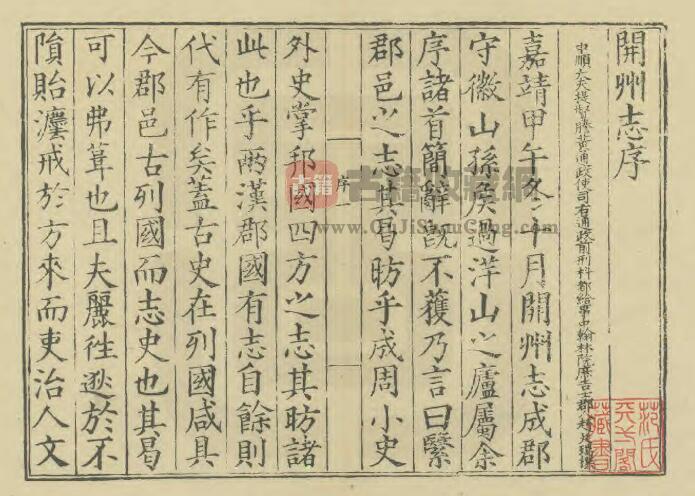 開州志序
中順大夫提督謄黃通政使司右通政前刑科都給事中翰林院庶吉士郡人趙廷瑞撰
嘉靖甲午冬十月開州志成郡
守徽山孫侯過洋山之廬屬余
序諸首簡辭既不獲乃言曰繄
郡邑之志其昌昉乎成周小史
序
一
外史掌邦國四方之志其昉諸
此也乎兩漢郡國有志自餘則
代有作矣蓋古史在列國咸具
今郡邑古列國而志史也其曷
可以弗葺也且夫麗徃逖於不
隕貽瀍戒於方來而吏治人文
范氏
天一閣
藏書
古籍
古籍收藏網
www.GuJiShuCang.com